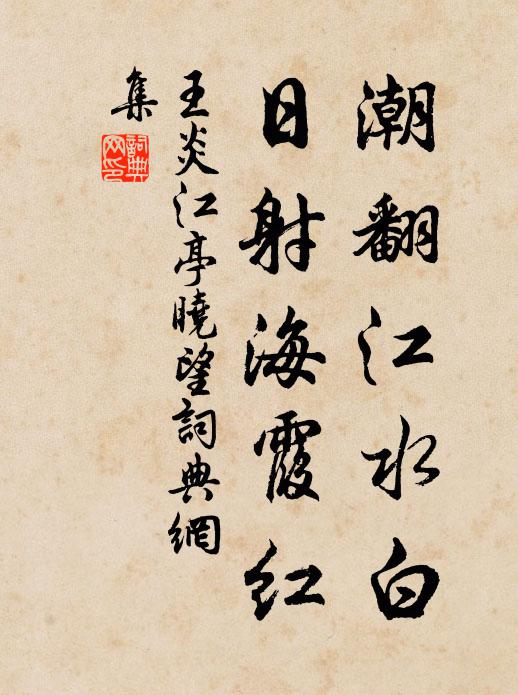 潮翻江水白
日射海霞红
王炎江亭曉望詞典網
集
詞典网印